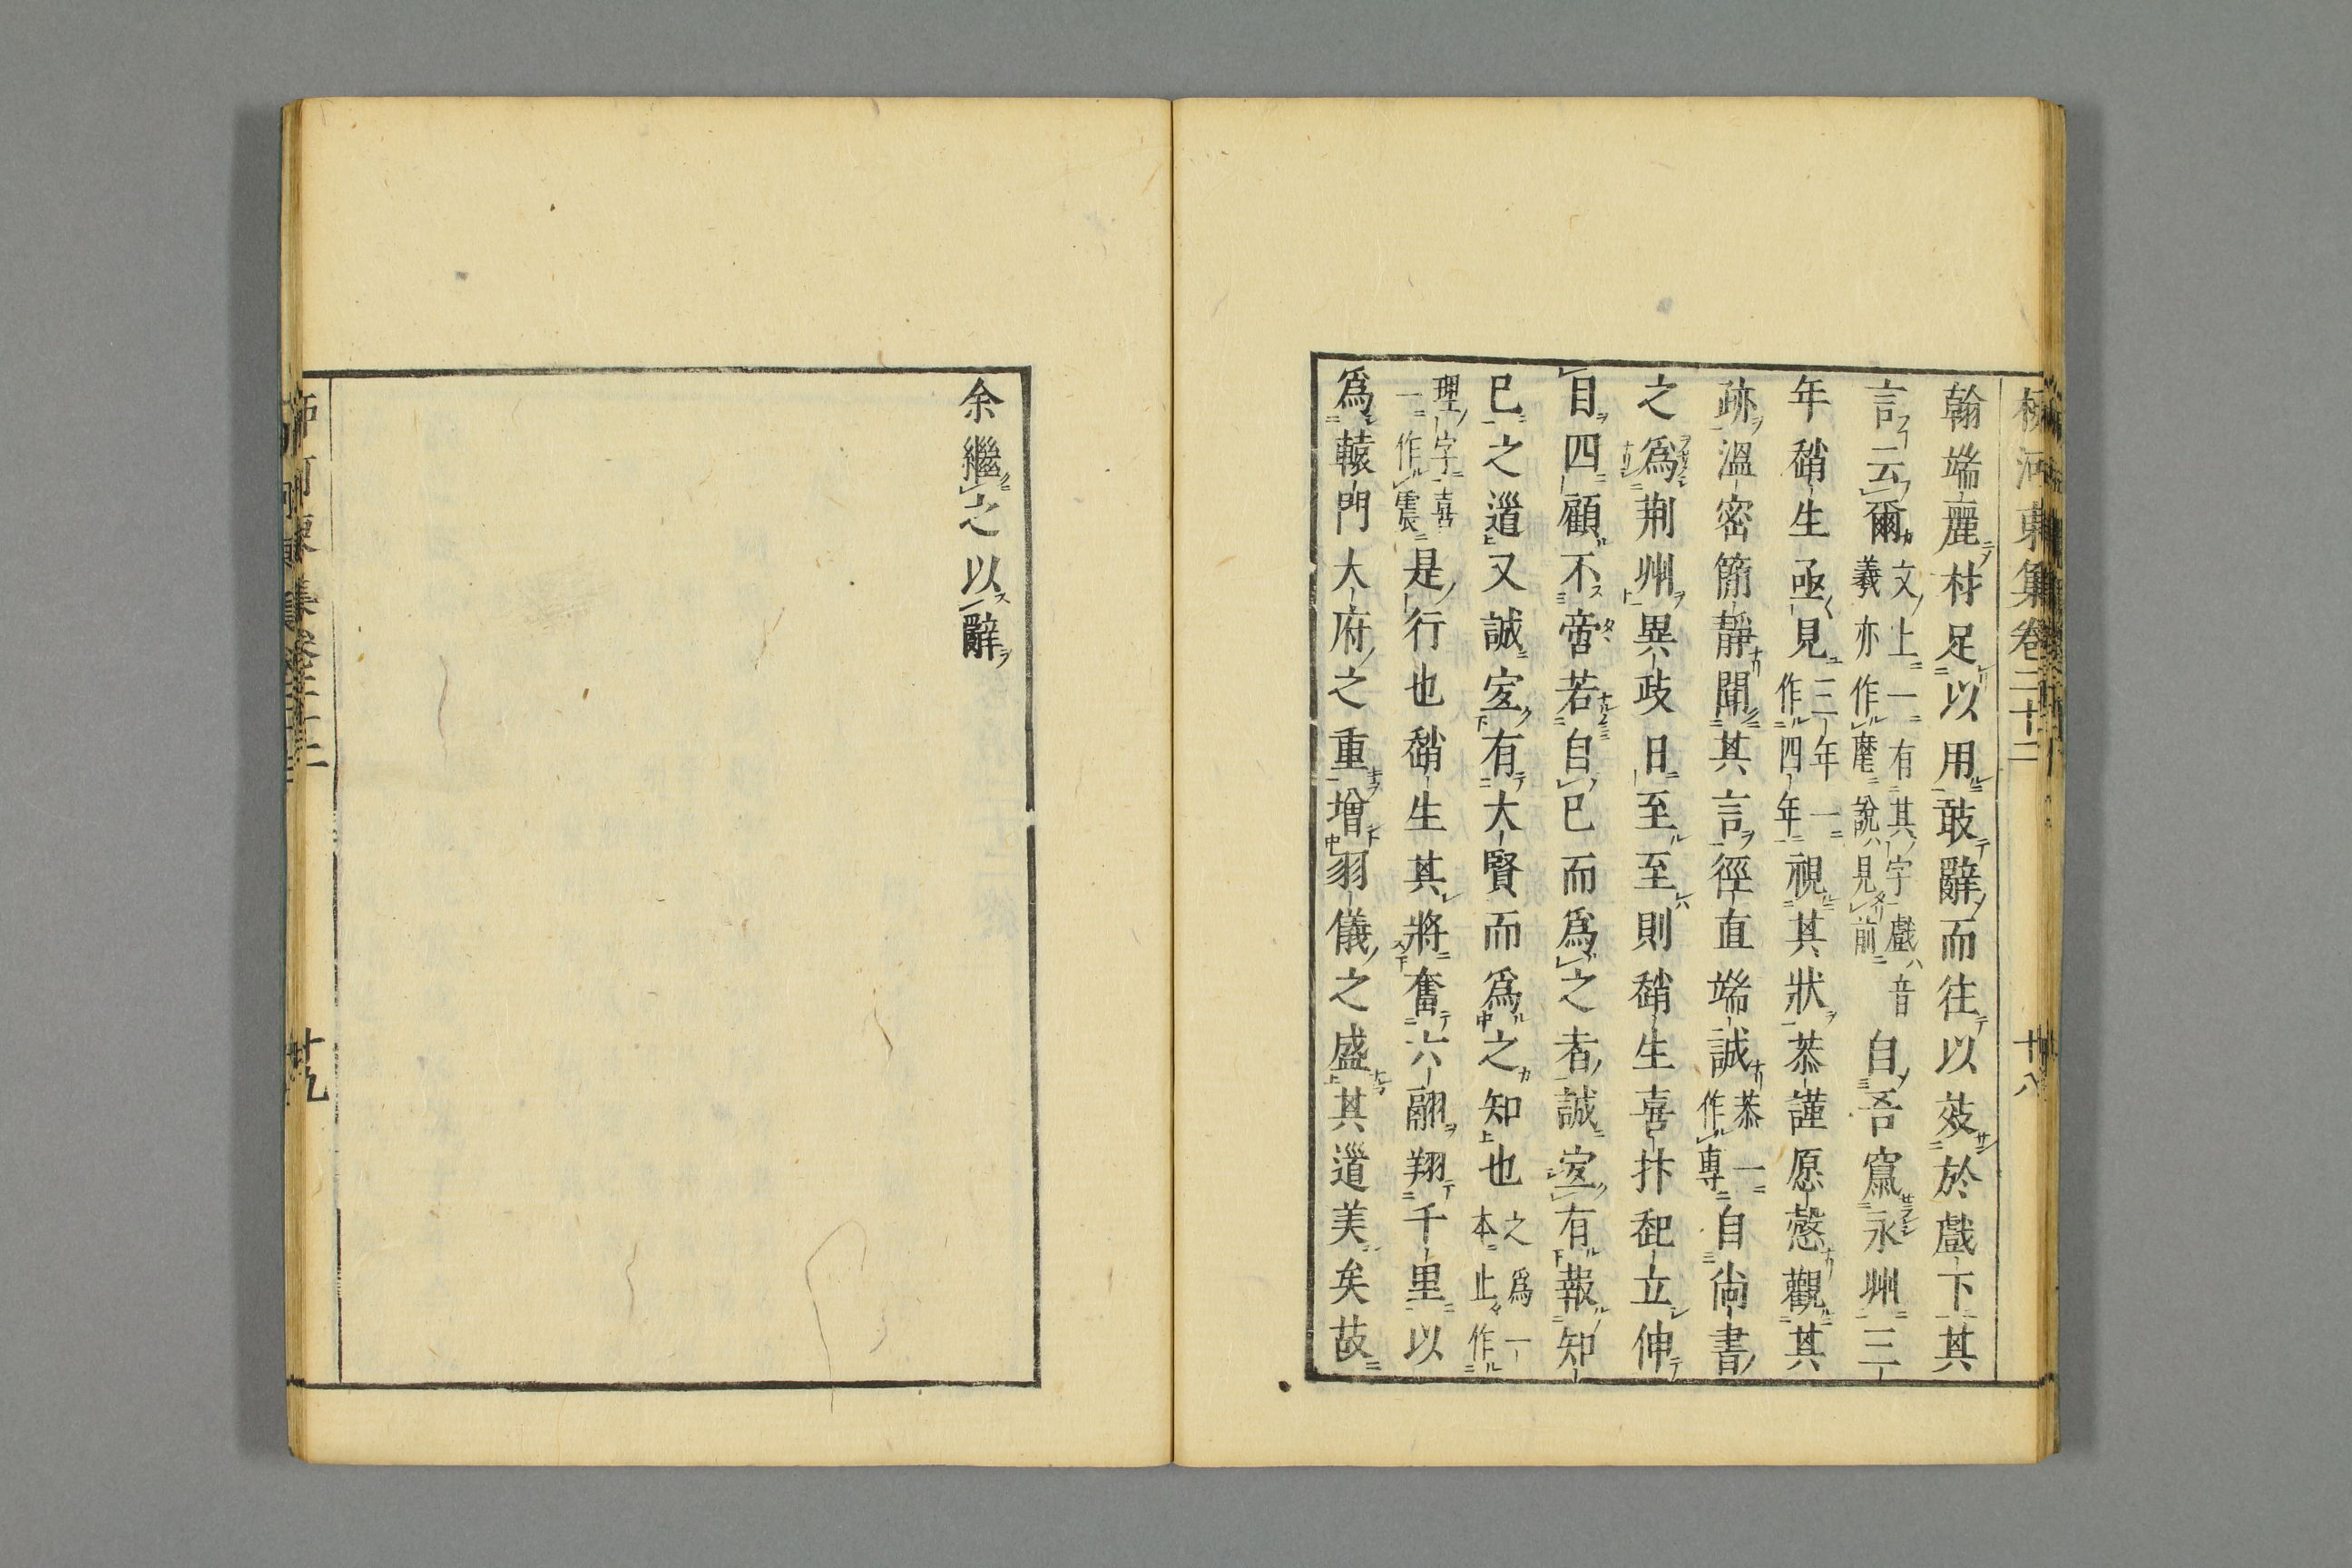 柳河東集卷二十二　十八
翰端麗材足以用敢辭而往以效於戲下其
言云爾文上一有其字戲音羲亦作麾說見前自吾竄永州三
年趙生亟見三年一作四年視其狀恭謹愿愨觀其
跡溫密簡靜聞其言徑直端誠恭一作專自尙書
之爲荆州異政日至至則趙生喜抃起立伸
目四顧不啻若自已而爲之者誠宜有報知
已之道又誠宜有大賢而爲之知也之爲一本止作
理字喜一作震是行也趙生其將奮六翮翔千里以
爲轅門大府之重增羽儀之盛其道美矣故
余繼之以辭
河東集卷二十二　十九